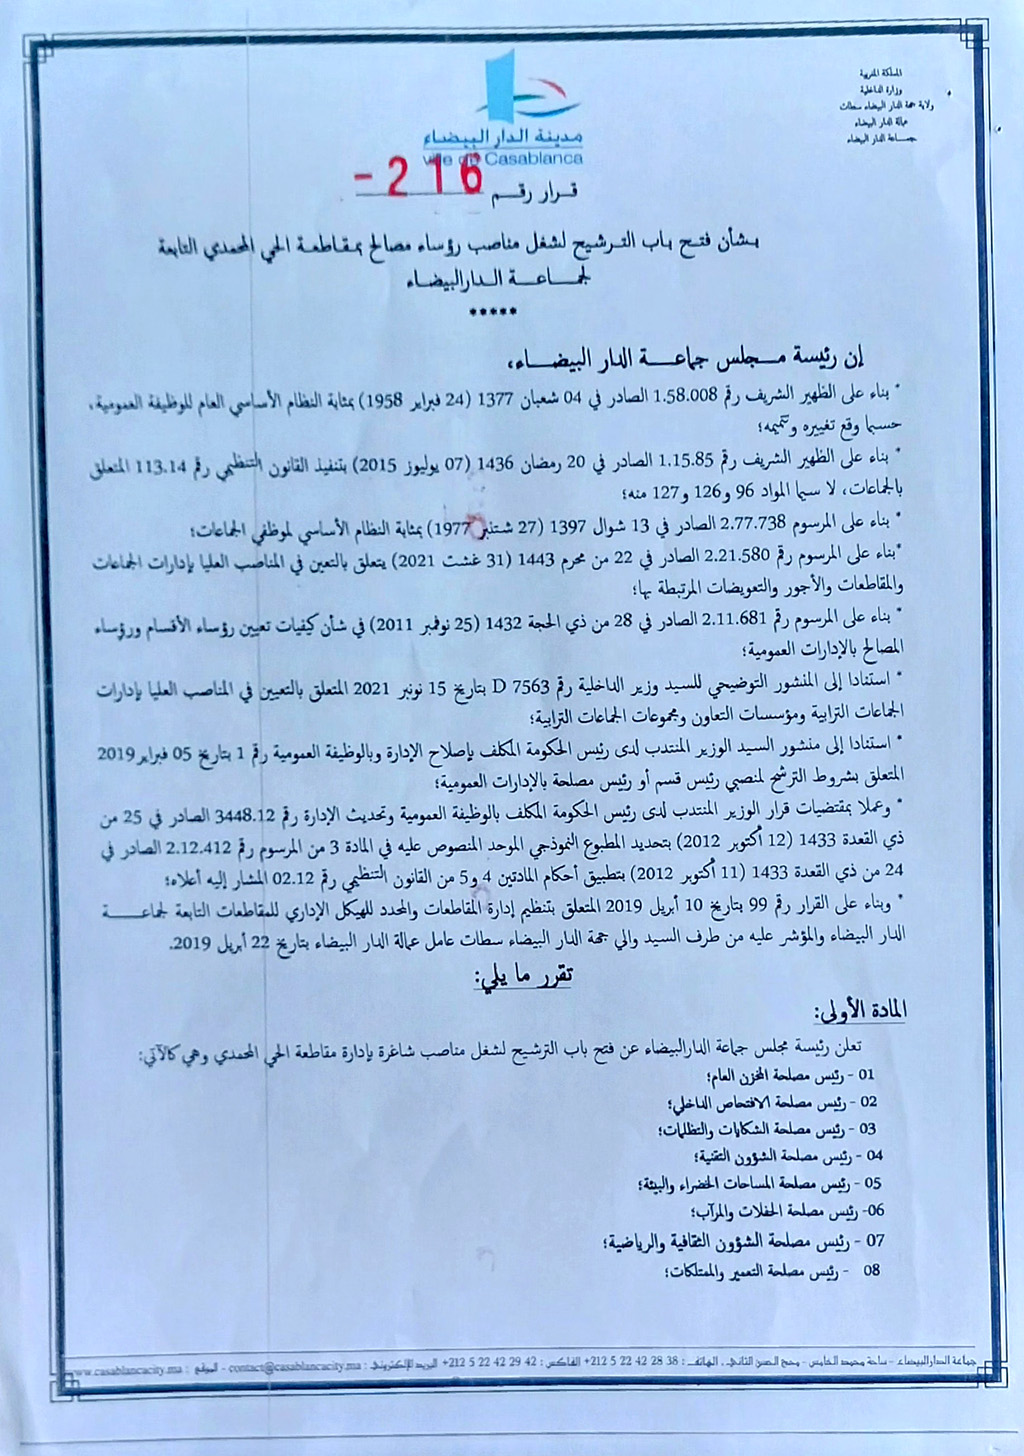 المملكة المغربية
وزارة الداخلية
ولاية جهة الدار البيضاء سطات
عمالة الدار البيضاء
جماعة الدار البيضاء
مدينة الدار البيضاء
Ville de Casablanca
قرار رقم 216 -
بشأن فتح باب الترشيح لشغل مناصب رؤساء مصالح بمقاطعة الحي المحمدي التابعة
لجماعة الدارالبيضاء
*****
إن رئيسة مجلس جماعة الدار البيضاء،
* بناء على الظهير الشريف رقم 1.58.008 الصادر في 04 شعبان 1377 (24 فبراير 1958) بمثابة النظام الأساسي العام للوظيفة العمومية،
حسبما وقع تغييره وتتميمه؛
* بناء على الظهير الشريف رقم 1.15.85 الصادر في 20 رمضان 1436 (07 يوليوز 2015) بتنفيذ القانون التنظيمي رقم 113.14 المتعلق
بالجماعات، لا سيما المواد 96 و126 و127 منه؛
* بناء على المرسوم رقم 2.77.738 الصادر في 13 شوال 1397 (27 شتنبر 1977) بمثابة النظام الأساسي لموظفي الجماعات؛
*بناء على المرسوم رقم 2.21.580 الصادر في 22 من محرم 1443 (31 غشت 2021) يتعلق بالتعين في المناصب العليا بإدارات الجماعات
والمقاطعات والأجور والتعويضات المرتبطة بها؛
* بناء على المرسوم رقم 2.11.681 الصادر في 28 من ذي الحجة 1432 (25 نوفمبر 2011) في شأن كيفيات تعيين رؤساء الأقسام ورؤساء
المصالح بالإدارات العمومية؛
* استنادا إلى المنشور التوضيحي للسيد وزير الداخلية رقم D 7563 بتاريخ 15 نونبر 2021 المتعلق بالتعيين في المناصب العليا بإدارات
الجماعات الترابية ومؤسسات التعاون ومجموعات الجماعات الترابية؛
* استنادا إلى منشور السيد الوزير المنتدب لدى رئيس الحكومة المكلف بإصلاح الإدارة وبالوظيفة العمومية رقم 1 بتاريخ 05 فبراير 2019
المتعلق بشروط الترشح لمنصبي رئيس قسم أو رئيس مصلحة بالإدارات العمومية؛
* وعملا بمقتضيات قرار الوزير المنتدب لدى رئيس الحكومة المكلف بالوظيفة العمومية وتحديث الإدارة رقم 3448.12 الصادر في 25 من
ذي القعدة 1433 (12 أكتوبر 2012) بتحديد المطبوع النموذجي الموحد المنصوص عليه في المادة 3 من المرسوم رقم 2.12.412 الصادر في
24 من ذي القعدة 1433 (11 أكتوبر 2012) بتطبيق أحكام المادتين 4 و5 من القانون التنظيمي رقم 02.12 المشار إليه أعلاه؛
* وبناء على القرار رقم 99 بتاريخ 10 أبريل 2019 المتعلق بتنظيم إدارة المقاطعات والمحدد للهيكل الإداري للمقاطعات التابعة لجماعة
الدار البيضاء والمؤشر عليه من طرف السيد والي جهة الدار البيضاء سطات عامل عمالة الدار البيضاء بتاريخ 22 أبريل 2019.
تقرر ما يلي:
المادة الأولى:
تعلن رئيسة مجلس جماعة الدارالبيضاء عن فتح باب الترشيح لشغل مناصب شاغرة بإدارة مقاطعة الحي المحمدي وهي كالآتي:
01 - رئيس مصلحة المخزن العام؛
02 - رئيس مصلحة الافتحاص الداخلي؛
03 - رئيس مصلحة الشكايات والتظلمات؛
04 - رئيس مصلحة الشؤون التقنية؛
05 - رئيس مصلحة المساحات الخضراء والبيئة؛
06- رئيس مصلحة الحفلات والمرآب؛
07 - رئيس مصلحة الشؤون الثقافية والرياضية؛
08 - رئيس مصلحة التعمير والممتلكات؛
جماعة الدارالبيضاء - ساحة محمد الخامس - محج الحسن الثاني. الهاتف : 38 28 42 22 5 212+ الفاكس : 42 29 42 22 5 212+ البريد الإلكتروني : contact@casablancacity.ma - الموقع : www.casablancacity.ma